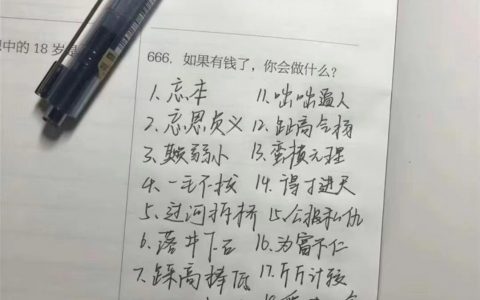 中的18岁是
666. 如果有钱了，你会做什么？
1、忘本 11、咄咄逼人
2、忘恩负义 12、趾高气扬
3、欺弱小 13、蛮横无理
4、一毛不拔 14、得寸进尺
5、过河拆桥 15、公报私仇
6、落井下石 16、为富不仁
7、踩高捧低 17、斤斤计较